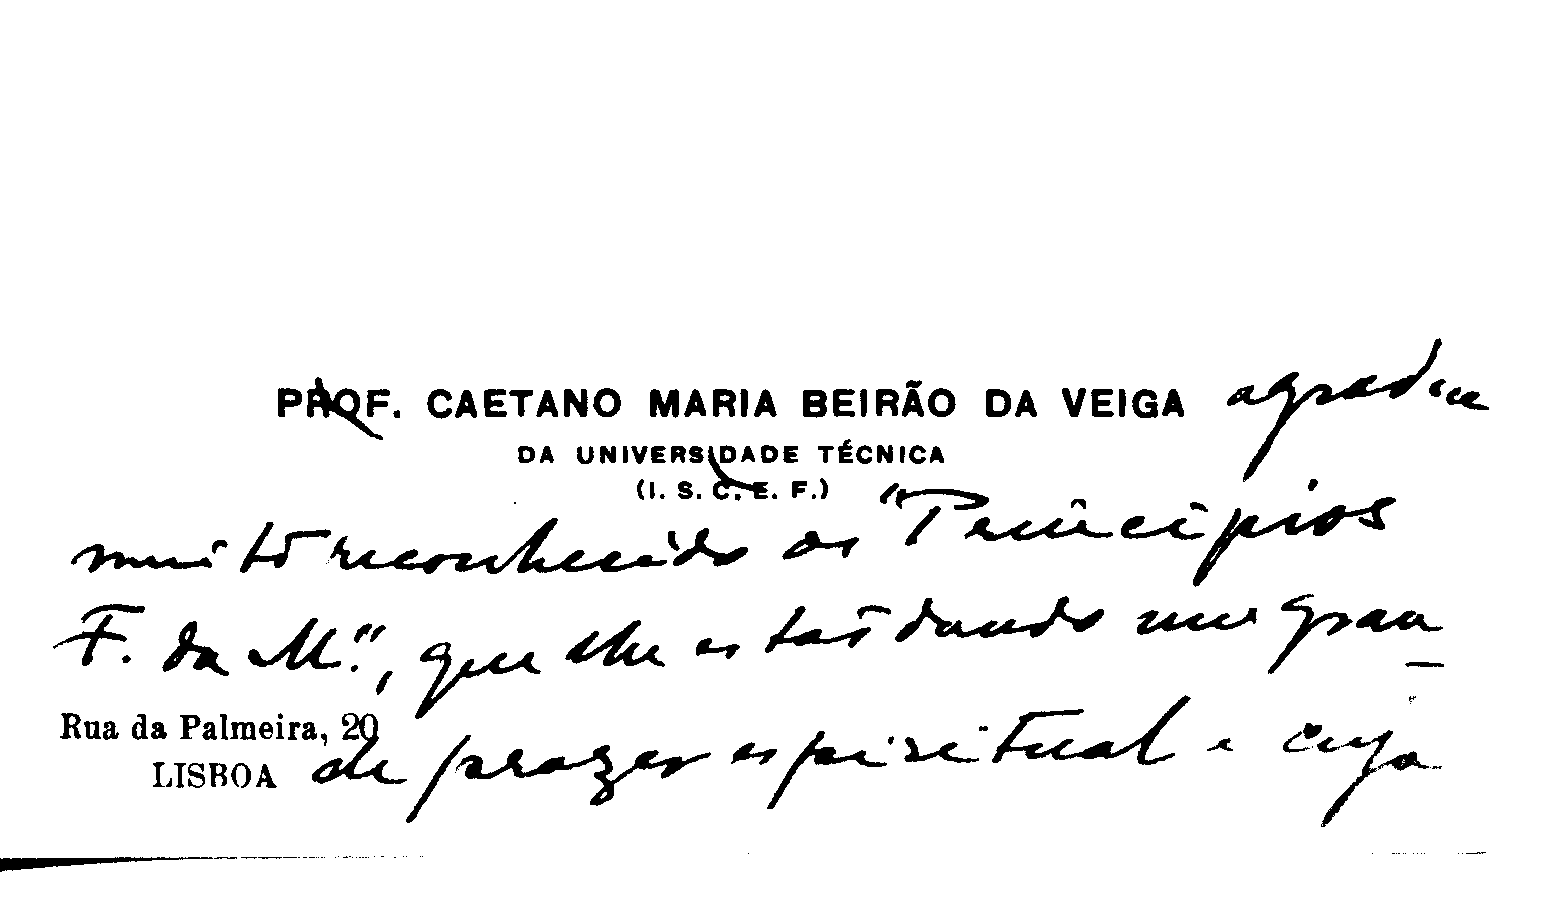 PROF. CAETANO MARIA BEIRÃO DA VEIGA agradece
DA UNIVERSIDADE TÉCNICA
(I. S. C. E. F.)
muito reconhecido os "Princípios
F. da M.", que lhe estão dando um gran
de prazer espiritual e cuja
Rua da Palmeira, 20
LISBOA